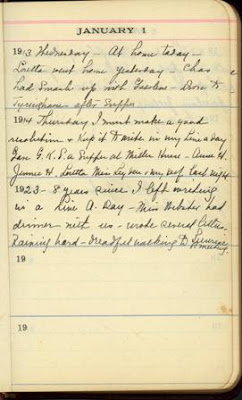 JANUARY 1
1913 Wednesday – At home today –
Loretta went home yesterday – Chas
had smash up with Gasolene – Over to
after Supper
1914 Thursday I must make a good
resolution & keep it to write in my Line a day
Jan G.K.S. a Supper at Miller House – Anna H.
Jennie H. Loretta Miss & myself last night
1923 – 8 years since I left writing
in a Line A-Day – Miss Webster had
dinner with us – wrote several letters.
Raining hard – dreadful walking to
meeting
19
19